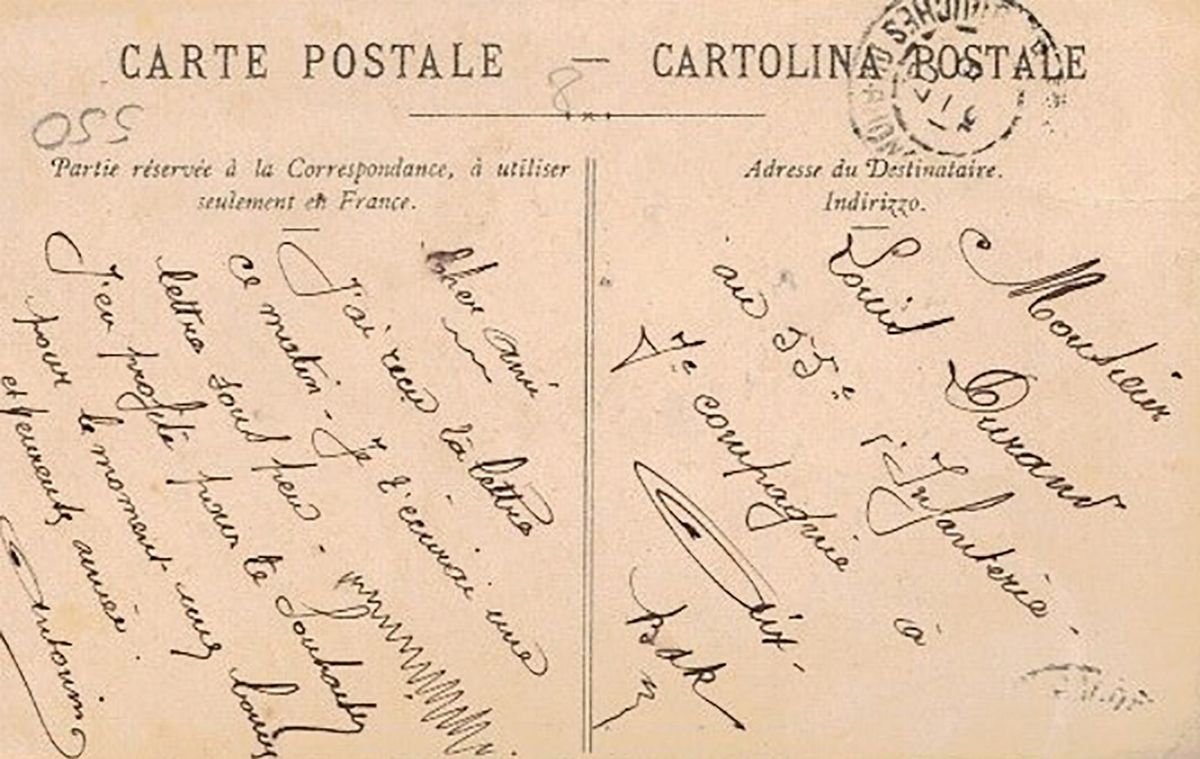 CARTE POSTALE — CARTOLINA POSTALE
8
550
Partie réservée à la Correspondance, à utiliser
seulement en France.
Cher ami
J'ai reçu ta lettre
ce matin. Je t'écrirai une
lettre sous peu.
J'en profite pour te souhaiter
pour le moment une bonne
et heureuse année.
Antonin
Adresse du Destinataire.
Indirizzo.
Monsieur
Louis Durand
au 55e d'Infanterie.
7e compagnie à
Aix-
Bdr